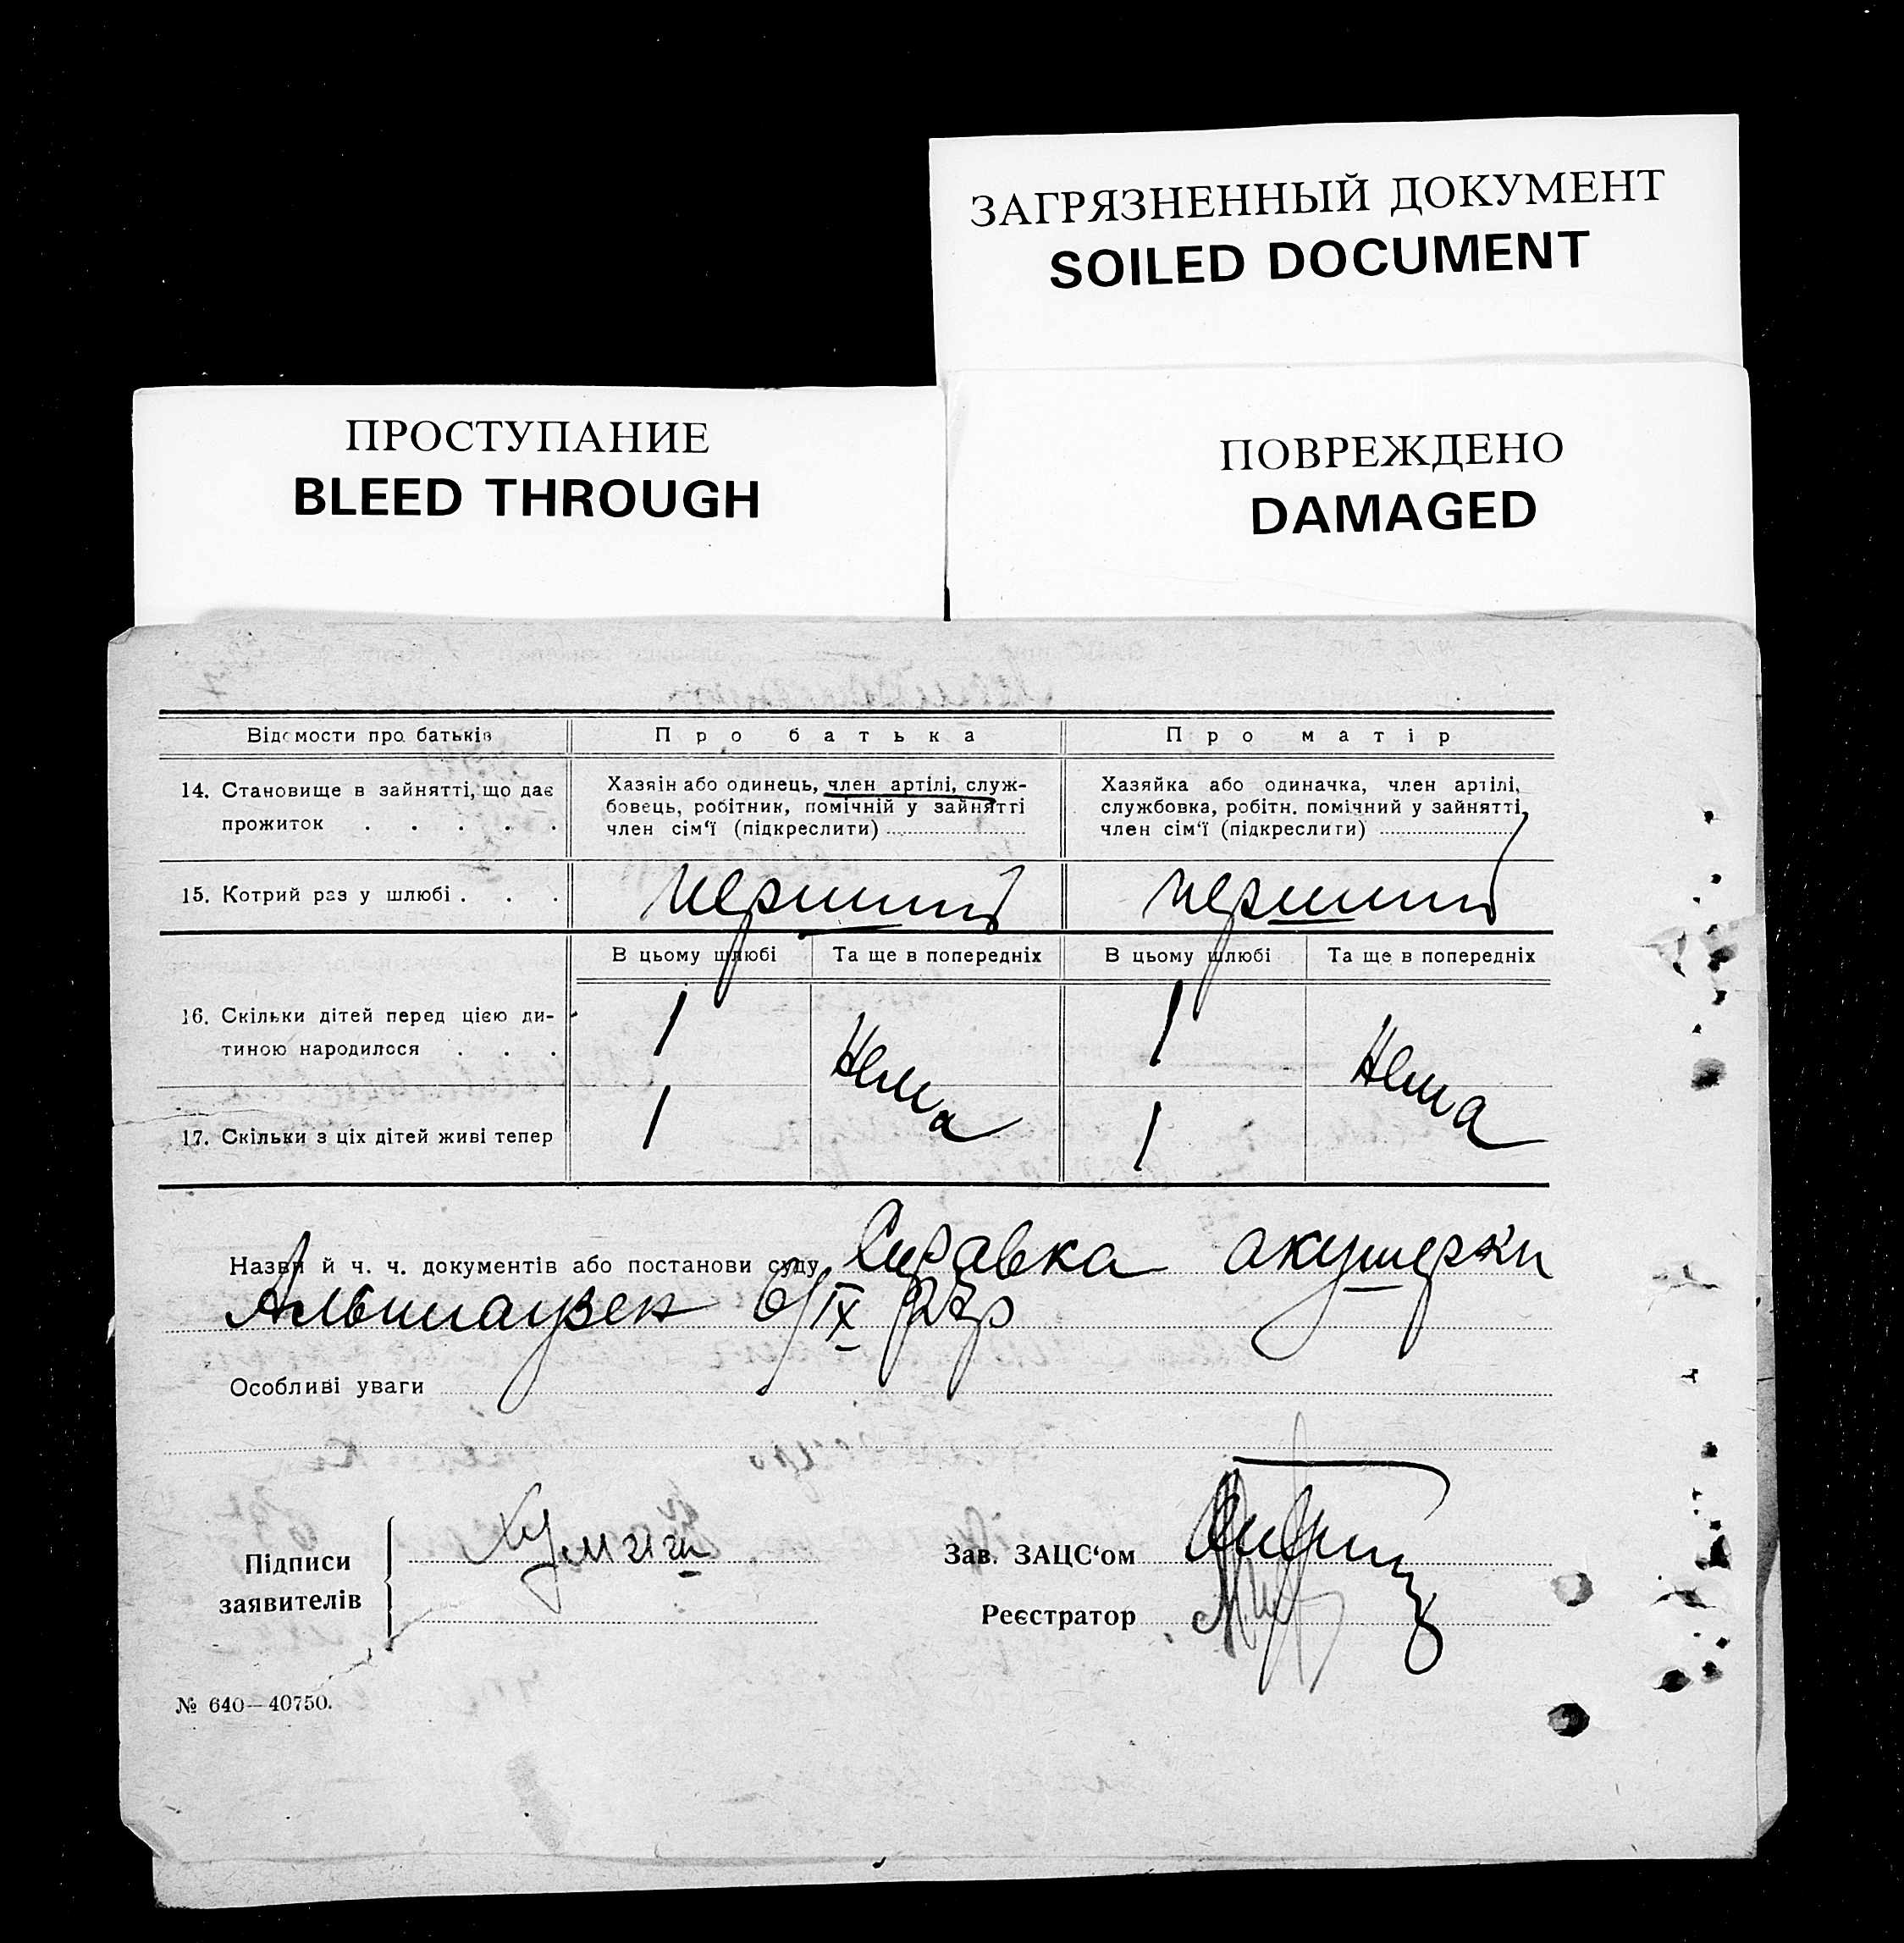 ЗАГРЯЗНЕННЫЙ ДОКУМЕНТ
SOILED DOCUMENT
ПРОСТУПАНИЕ
BLEED THROUGH
ПОВРЕЖДЕНО
DAMAGED
Відомости про батьків Про батька Про матір
14. Становище в зайнятті, що дає прожиток . . . . .
Хазяін або одинець, член артілі, служ-
бовець, робітник, помічній у зайнятті
член сім‘ї (підкреслити)
Хазяйка або одиначка, член артілі,
службовка, робітн. помічний у зайнятті,
член сім‘ї (підкреслити)
15. Котрий раз у шлюбі . . . перший перший
В цьому шлюбі Та ще в попередніх В цьому шлюбі Та ще в попередніх
16. Скільки дітей перед цією ди-
тиною народилося . . . 1 Нема 1 Нема
17. Скільки з ціх дітей живі тепер 1 1
Назви й ч. ч. документів або постанови суду Справка акушерки
6/IX 927р
Особливі уваги
Підписи
заявителів
Зав. ЗАЦС‘ом
Реєстратор
№ 640—40750.